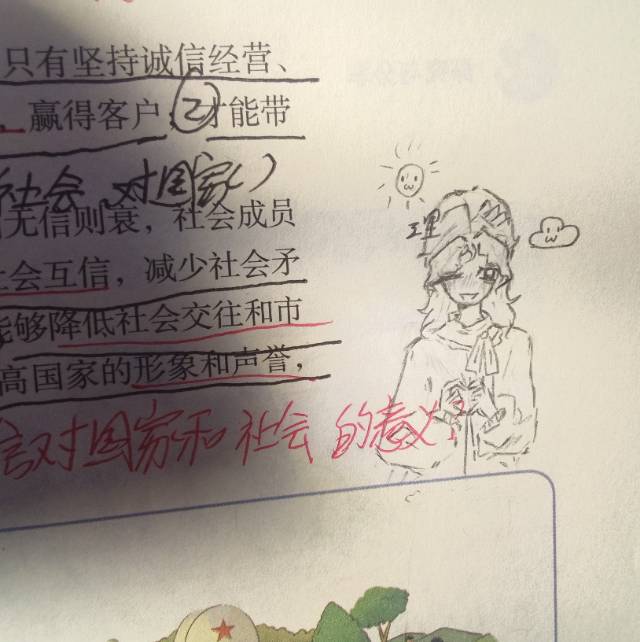 只有坚持诚信经营、
赢得客户；②才能带
社会、对国家）
无信则衰，社会成员
社会互信，减少社会矛
能够降低社会交往和市
高国家的形象和声誉，
言对国家和社会的意义？